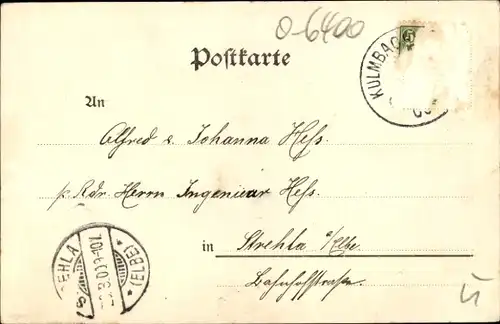 0-6400
Postkarte
KULMBAC
An
Alfred & Johanna Hess.
p. Adr. Herrn Ingenieur Hess.
in Strehla a/Elbe
Bahnhofstraße.
EHLA
(ELBE)